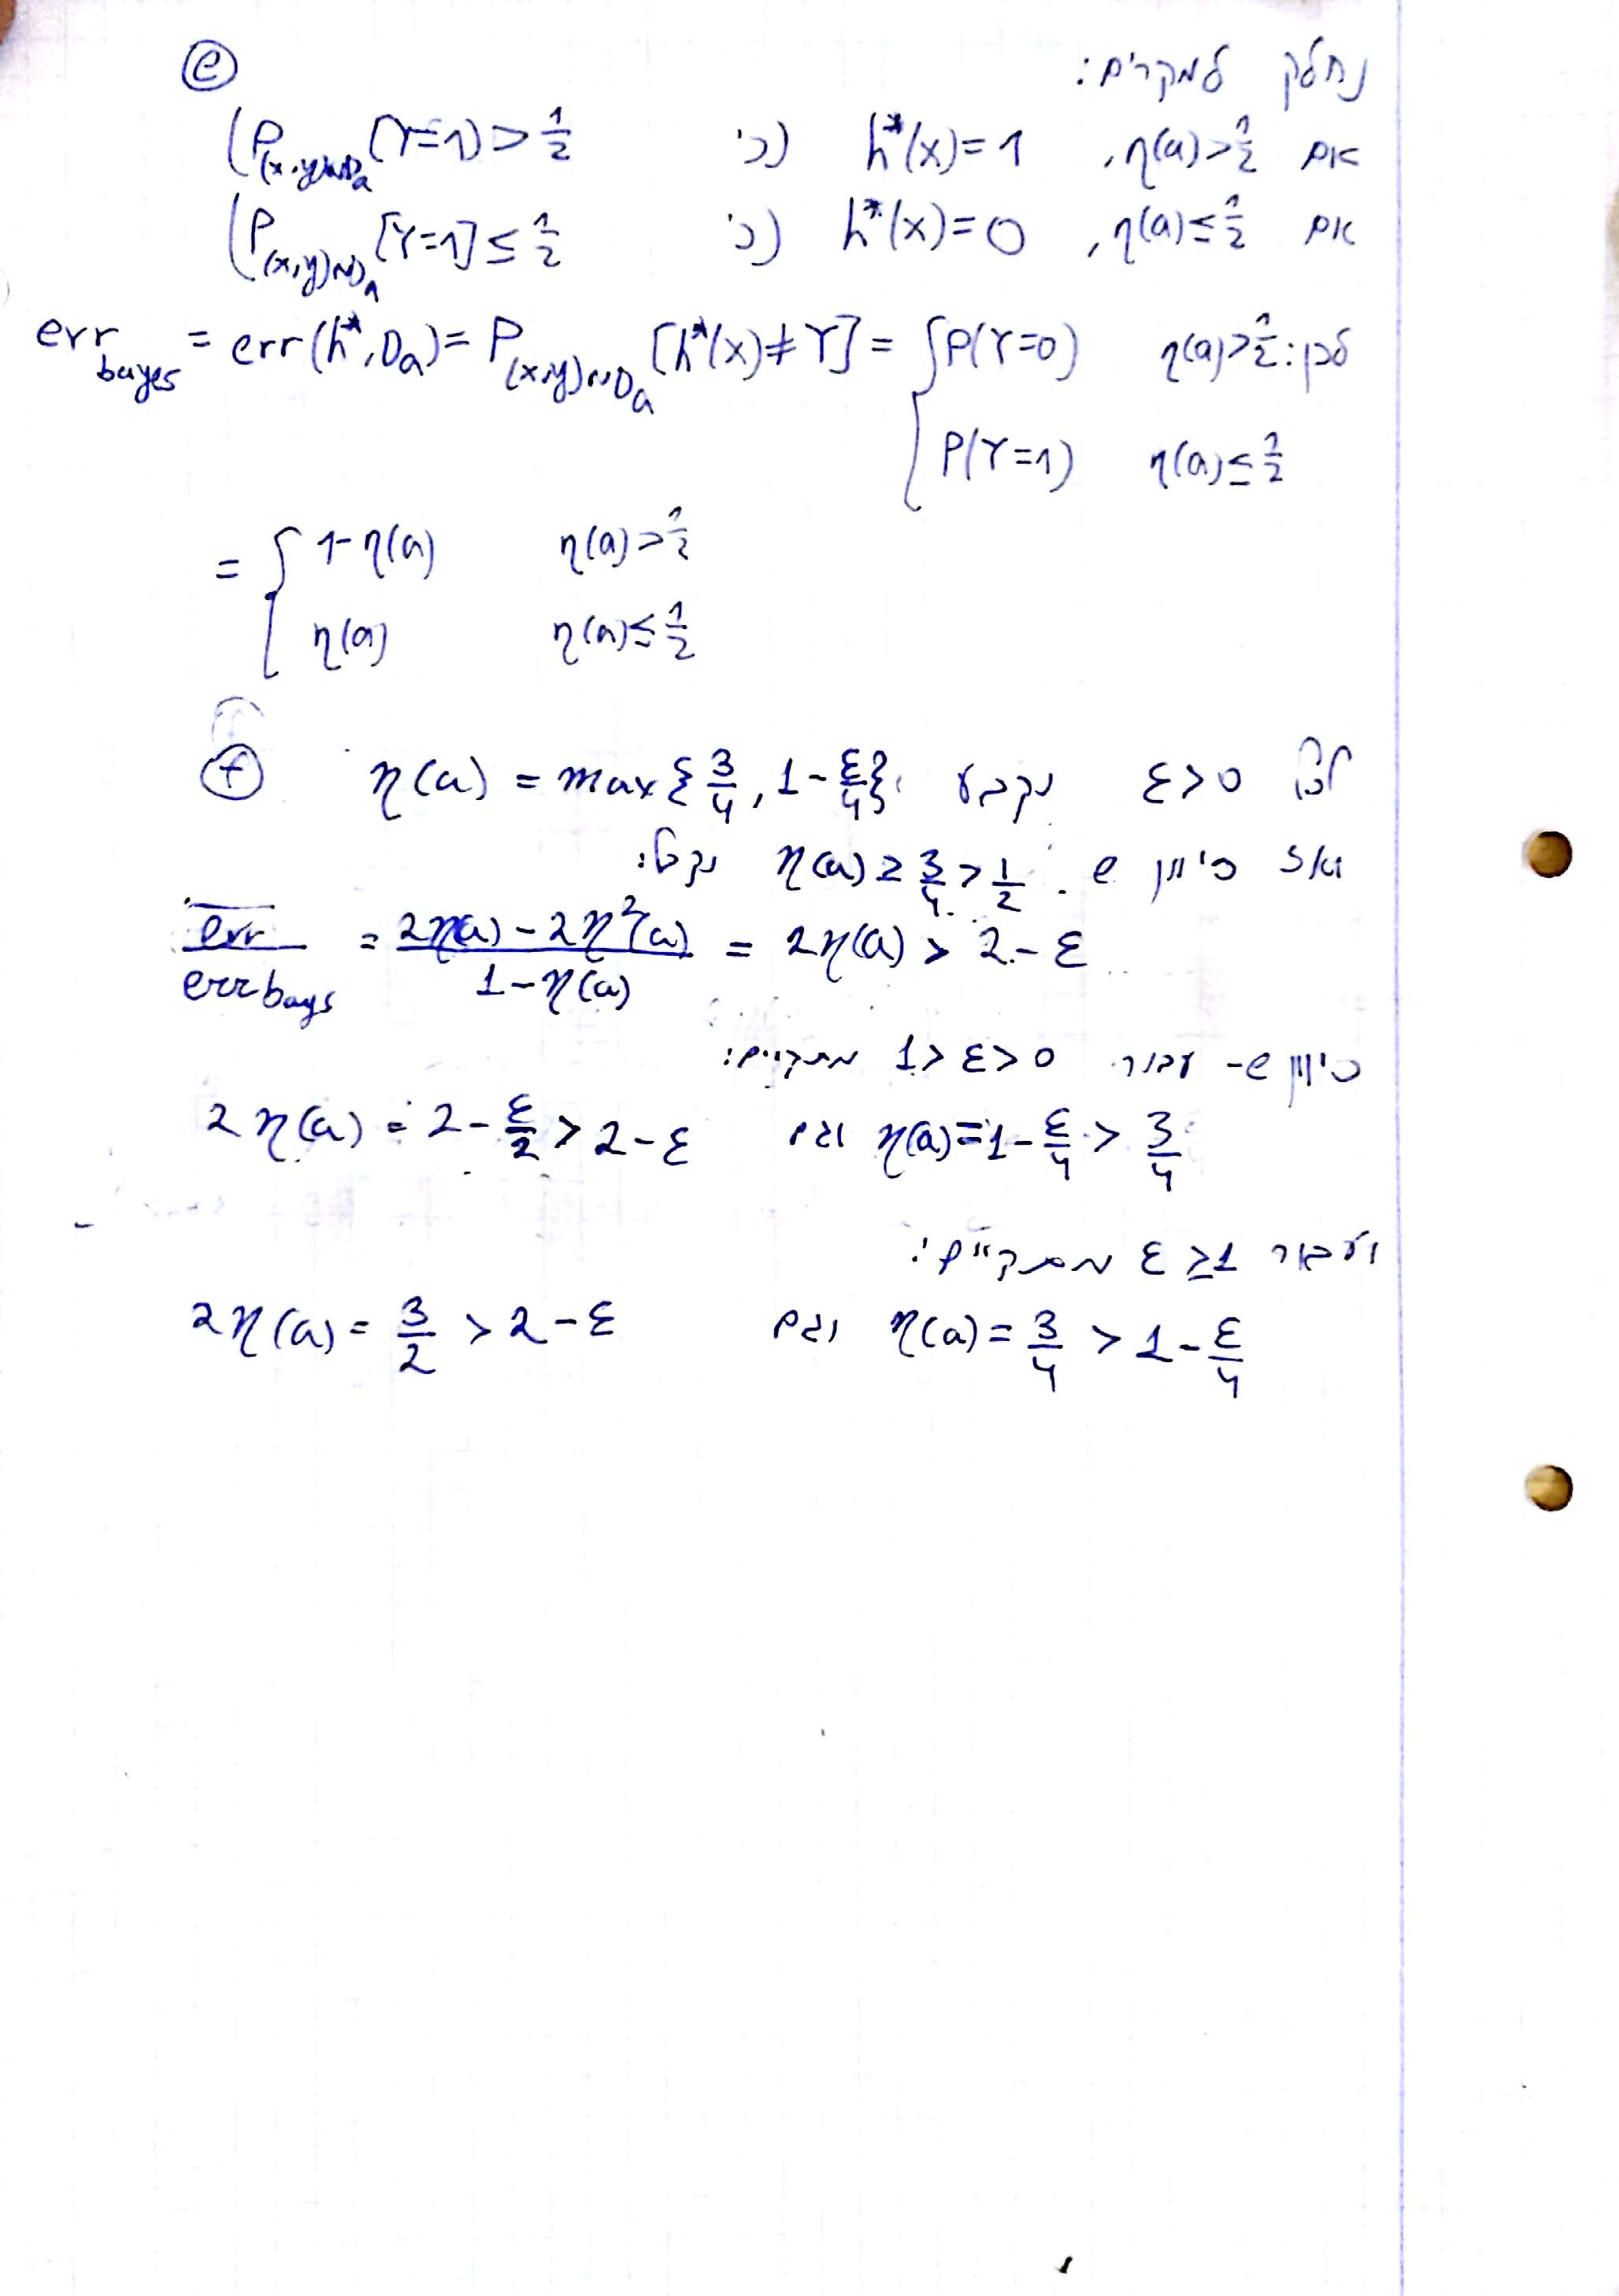 ⓔ נחלק למקרים:
אם η(a)>1/2, h*(x)=1 (כי P_(x,y)~D_a[Y=1)>1/2)
אם η(a)≤1/2, h*(x)=0 (כי P_(x,y)~D_a[Y=1]≤1/2)
לכן: err_bayes = err(h*,D_a) = P_(x,y)~D_a[h*(x)≠Y] = { P(Y=0) η(a)>1/2
P(Y=1) η(a)≤1/2
= { 1-η(a) η(a)>1/2
η(a) η(a)≤1/2
ⓕ לכל ε>0 נקבע η(a) = max{3/4, 1-ε/4}
ואז כיוון ש η(a) ≥ 3/4 > 1/2 נקבל:
err/err bays = (2η(a) - 2η²(a))/(1-η(a)) = 2η(a) > 2-ε
כיוון ש- עבור 1>ε>0 מתקיים:
η(a)=1-ε/4 > 3/4 וגם 2η(a) = 2-ε/2 > 2-ε
ועבור ε≥1 מתקיים:
η(a) = 3/4 > 1-ε/4 וגם 2η(a) = 3/2 > 2-ε